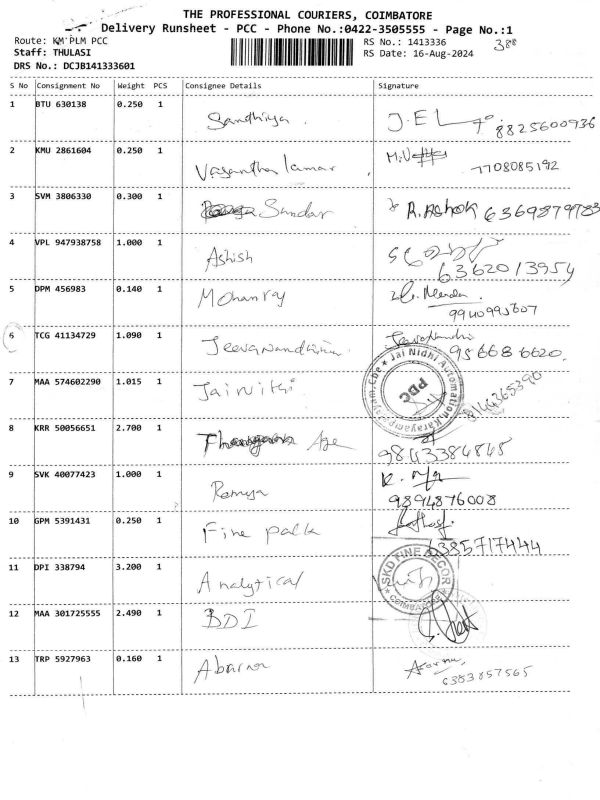 THE PROFESSIONAL COURIERS, COIMBATORE
Delivery Runsheet - PCC - Phone No.:0422-3505555 - Page No.:1
Route: KM PLM PCC
RS No.: 1413336
388
Staff: THULASI
RS Date: 16-Aug-2024
DRS No.: DCJB141333601
S No Consignment No Weight PCS Consignee Details Signature
1 BTU 630138 0.250 1 Sandhiya J.E 8825600936
2 KMU 2861604 0.250 1 Vasantha kumar 7708085192
3 SVM 3806330 0.300 1 Sundar R. Ashok 6369879783
4 VPL 947938758 1.000 1 Ashish 6362013954
5 DPM 456983 0.140 1 Mohanraj 9940995607
6 TCG 41134729 1.090 1 956686620.
7 MAA 574602290 1.015 1 Jai Nidhi Automation PDC 8144365390
8 KRR 50056651 2.700 1 Age 9843384845
9 SVK 40077423 1.000 1 Ramya 9894876008
10 GPM 5391431 0.250 1 Fine palk 6385717444
11 DPI 338794 3.200 1 Analytical COIMBATORE
12 MAA 301725555 2.490 1 BDI
13 TRP 5927963 0.160 1 Abarna 6383857565